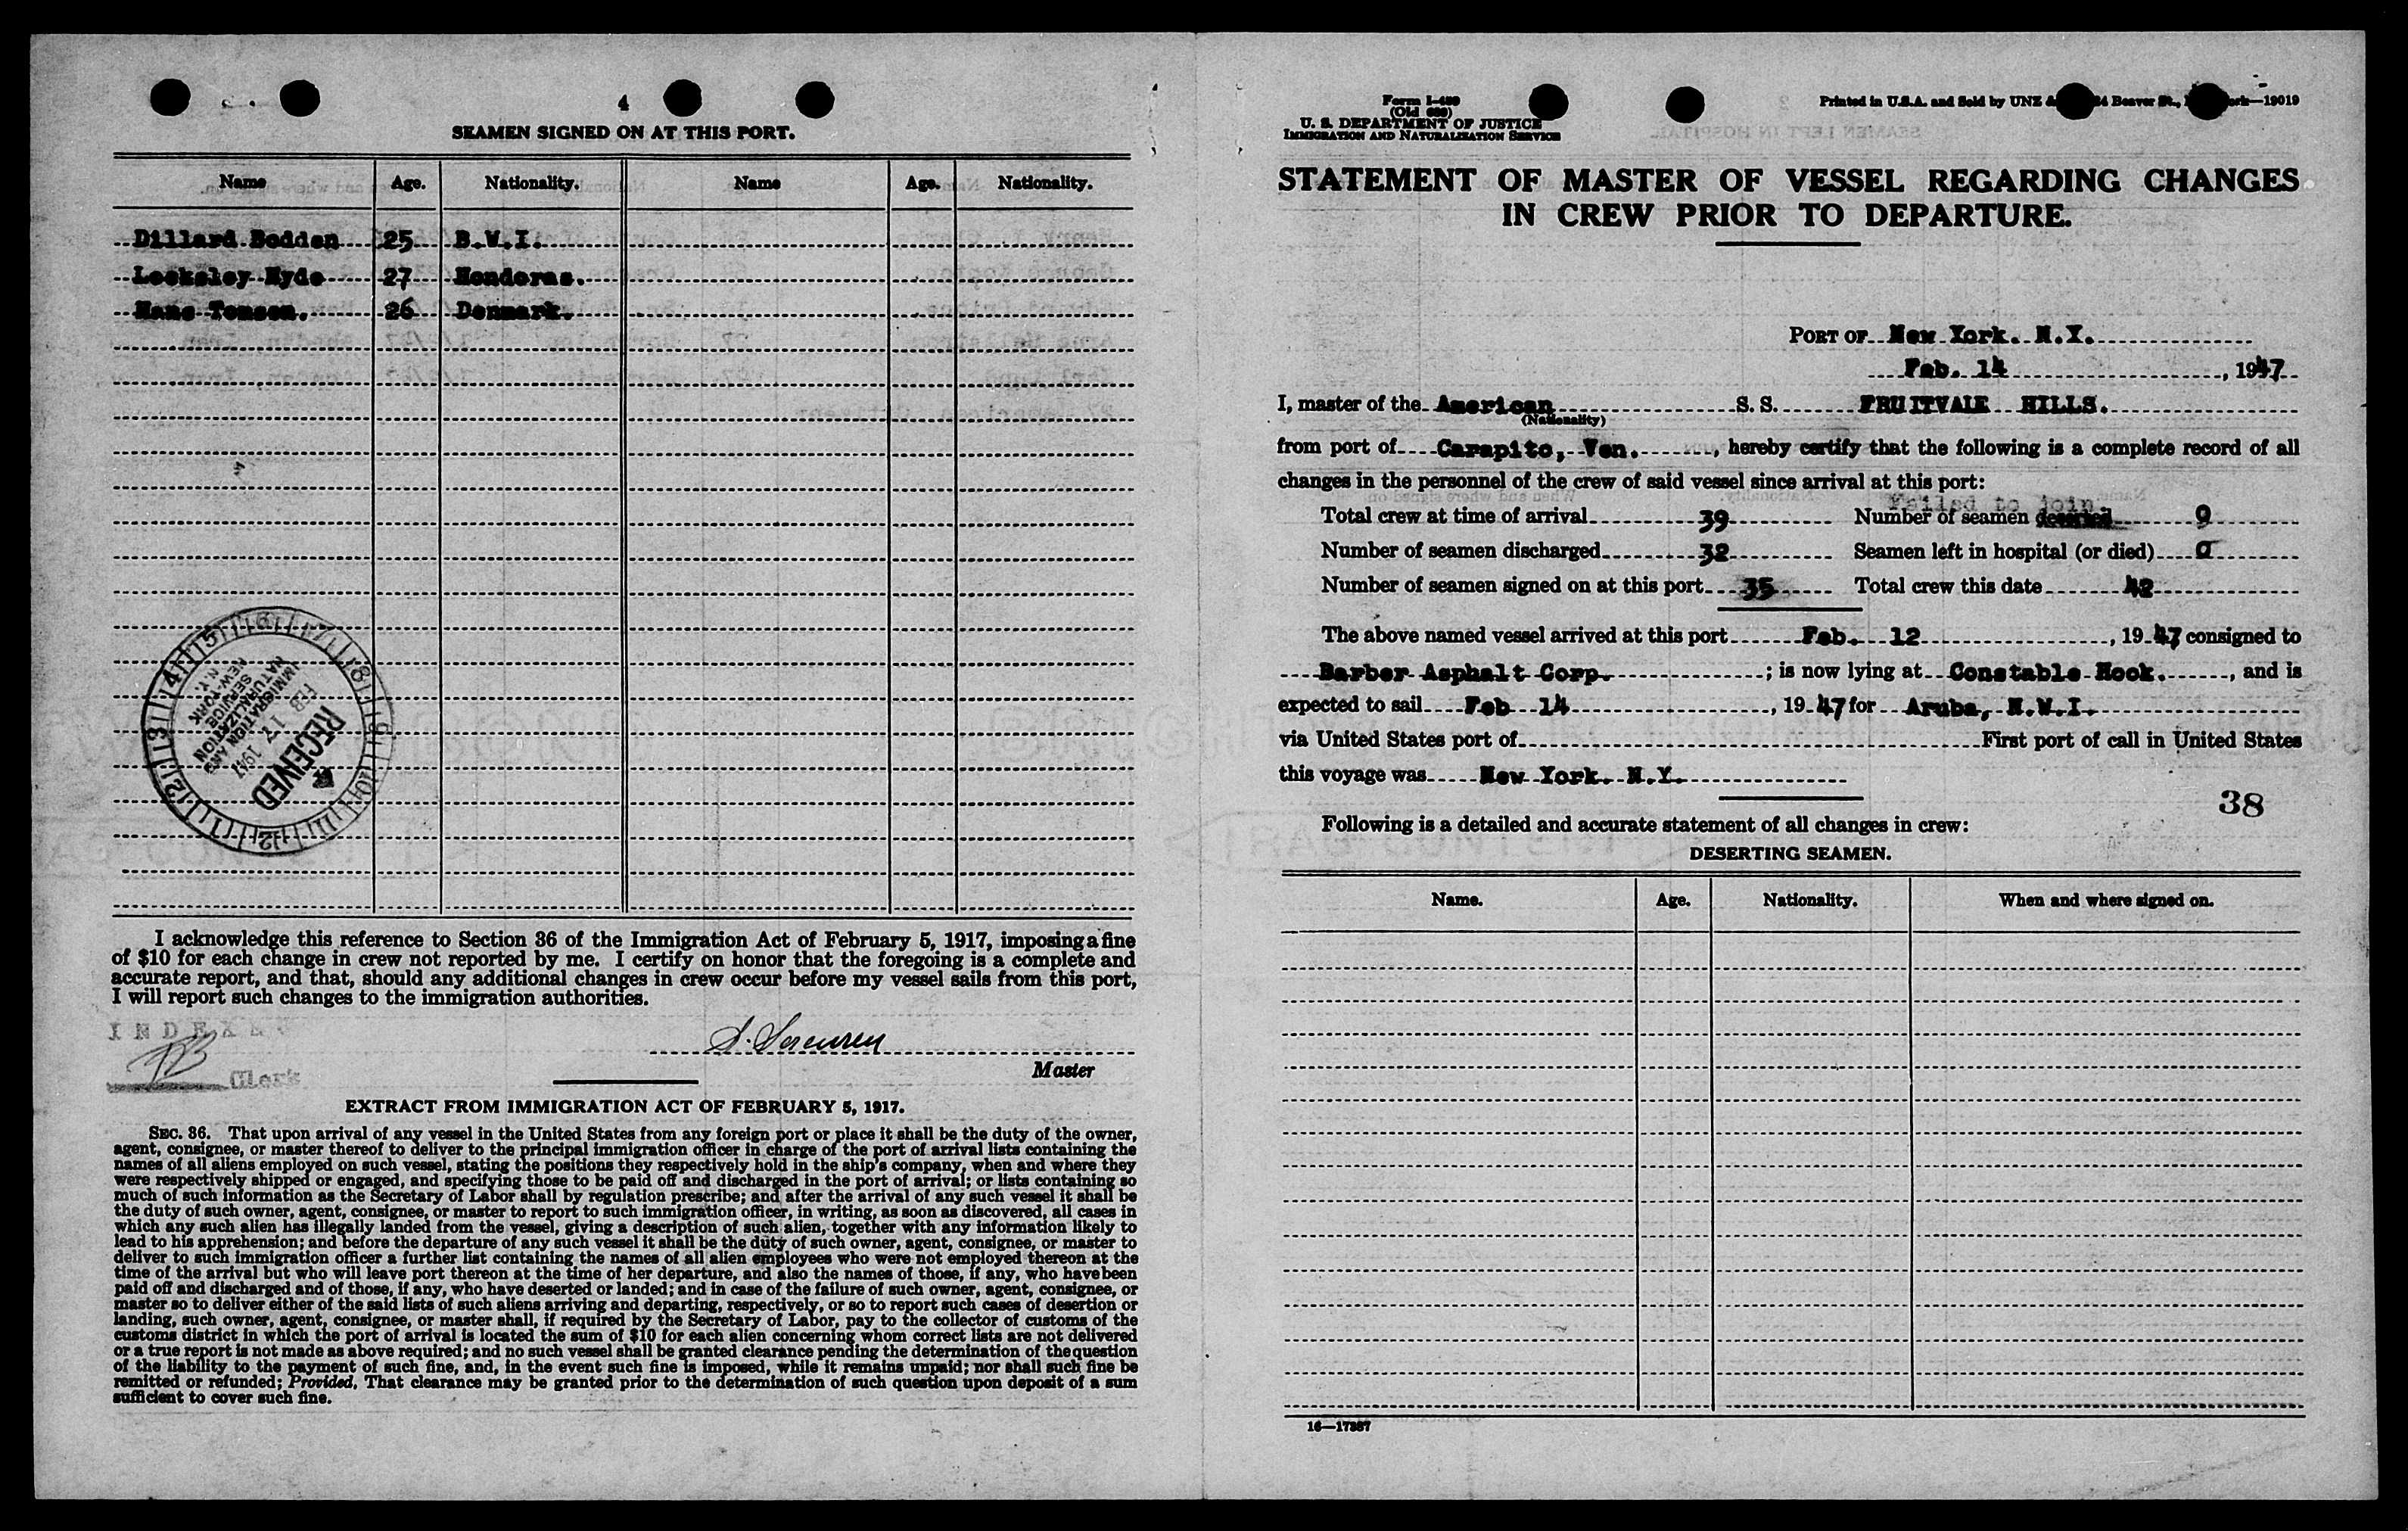 4
SEAMEN SIGNED ON AT THIS PORT.
Name Age. Nationality. Name Age. Nationality.
Dillard Bodden 25 B.W.I.
Locksley Hyde 27 Honduras.
Hans Tomsen. 26 Denmark.
RECEIVED
FEB 17 1947
IMMIGRATION AND
NATURALIZATION
SERVICE
NEW YORK
N.Y.
I acknowledge this reference to Section 36 of the Immigration Act of February 5, 1917, imposing a fine
of $10 for each change in crew not reported by me. I certify on honor that the foregoing is a complete and
accurate report, and that, should any additional changes in crew occur before my vessel sails from this port,
I will report such changes to the immigration authorities.
S. Sorensen
Clerk
Master
EXTRACT FROM IMMIGRATION ACT OF FEBRUARY 5, 1917.
SEC. 36. That upon arrival of any vessel in the United States from any foreign port or place it shall be the duty of the owner,
agent, consignee, or master thereof to deliver to the principal immigration officer in charge of the port of arrival lists containing the
names of all aliens employed on such vessel, stating the positions they respectively hold in the ship's company, when and where they
were respectively shipped or engaged, and specifying those to be paid off and discharged in the port of arrival; or lists containing so
much of such information as the Secretary of Labor shall by regulation prescribe; and after the arrival of any such vessel it shall be
the duty of such owner, agent, consignee, or master to report to such immigration officer, in writing, as soon as discovered, all cases in
which any such alien has illegally landed from the vessel, giving a description of such alien, together with any information likely to
lead to his apprehension; and before the departure of any such vessel it shall be the duty of such owner, agent, consignee, or master to
deliver to such immigration officer a further list containing the names of all alien employees who were not employed thereon at the
time of the arrival but who will leave port thereon at the time of her departure, and also the names of those, if any, who have been
paid off and discharged and of those, if any, who have deserted or landed; and in case of the failure of such owner, agent, consignee, or
master so to deliver either of the said lists of such aliens arriving and departing, respectively, or so to report such cases of desertion or
landing, such owner, agent, consignee, or master shall, if required by the Secretary of Labor, pay to the collector of customs of the
customs district in which the port of arrival is located the sum of $10 for each alien concerning whom correct lists are not delivered
or a true report is not made as above required; and no such vessel shall be granted clearance pending the determination of the question
of the liability to the payment of such fine, and, in the event such fine is imposed, while it remains unpaid; nor shall such fine be
remitted or refunded; Provided, That clearance may be granted prior to the determination of such question upon deposit of a sum
sufficient to cover such fine.
Form I-489
(Old 689)
U. S. DEPARTMENT OF JUSTICE
IMMIGRATION AND NATURALIZATION SERVICE
Printed in U.S.A. and Sold by UNZ & Beaver St., 19019
STATEMENT OF MASTER OF VESSEL REGARDING CHANGES
IN CREW PRIOR TO DEPARTURE.
PORT OF New York. N.Y.
Feb. 14, 1947
I, master of the American S. S. FRUITVALE HILLS.
(Nationality)
from port of Carapito, Ven., hereby certify that the following is a complete record of all
changes in the personnel of the crew of said vessel since arrival at this port:
Failed to join
Total crew at time of arrival 39 Number of seamen deserted 0
Number of seamen discharged 32 Seamen left in hospital (or died) 0
Number of seamen signed on at this port 35 Total crew this date 42
The above named vessel arrived at this port Feb. 12, 1947 consigned to
Barber Asphalt Corp.; is now lying at Constable Hook., and is
expected to sail Feb 14, 1947 for Aruba, N.W.I.
via United States port of First port of call in United States
this voyage was New York. N.Y.
38
Following is a detailed and accurate statement of all changes in crew:
DESERTING SEAMEN.
Name. Age. Nationality. When and where signed on.
16—17387